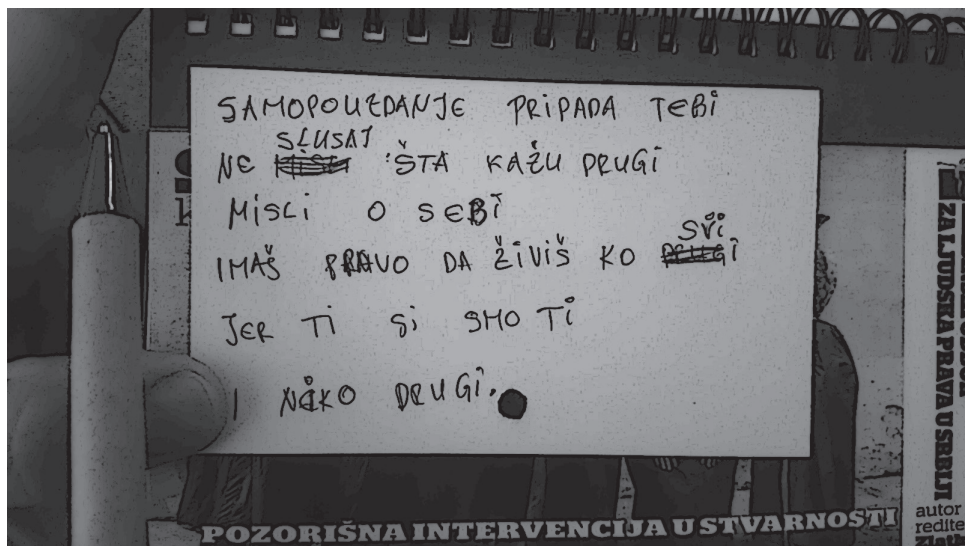 SAMOPOUZDANJE PRIPADA TEBI
SLUSAJ
NE ŠTA KAŽU DRUGI
MISLI O SEBI
SVI
IMAŠ PRAVO DA ŽIVIŠ KO
JER TI Si SMO Ti
I NiKO DRUGi.
POZORIŠNA INTERVENCIJA U STVARNOSTI
ZA LJUDSKA PRAVA U SRBIJI
autor
redite
Zlatk